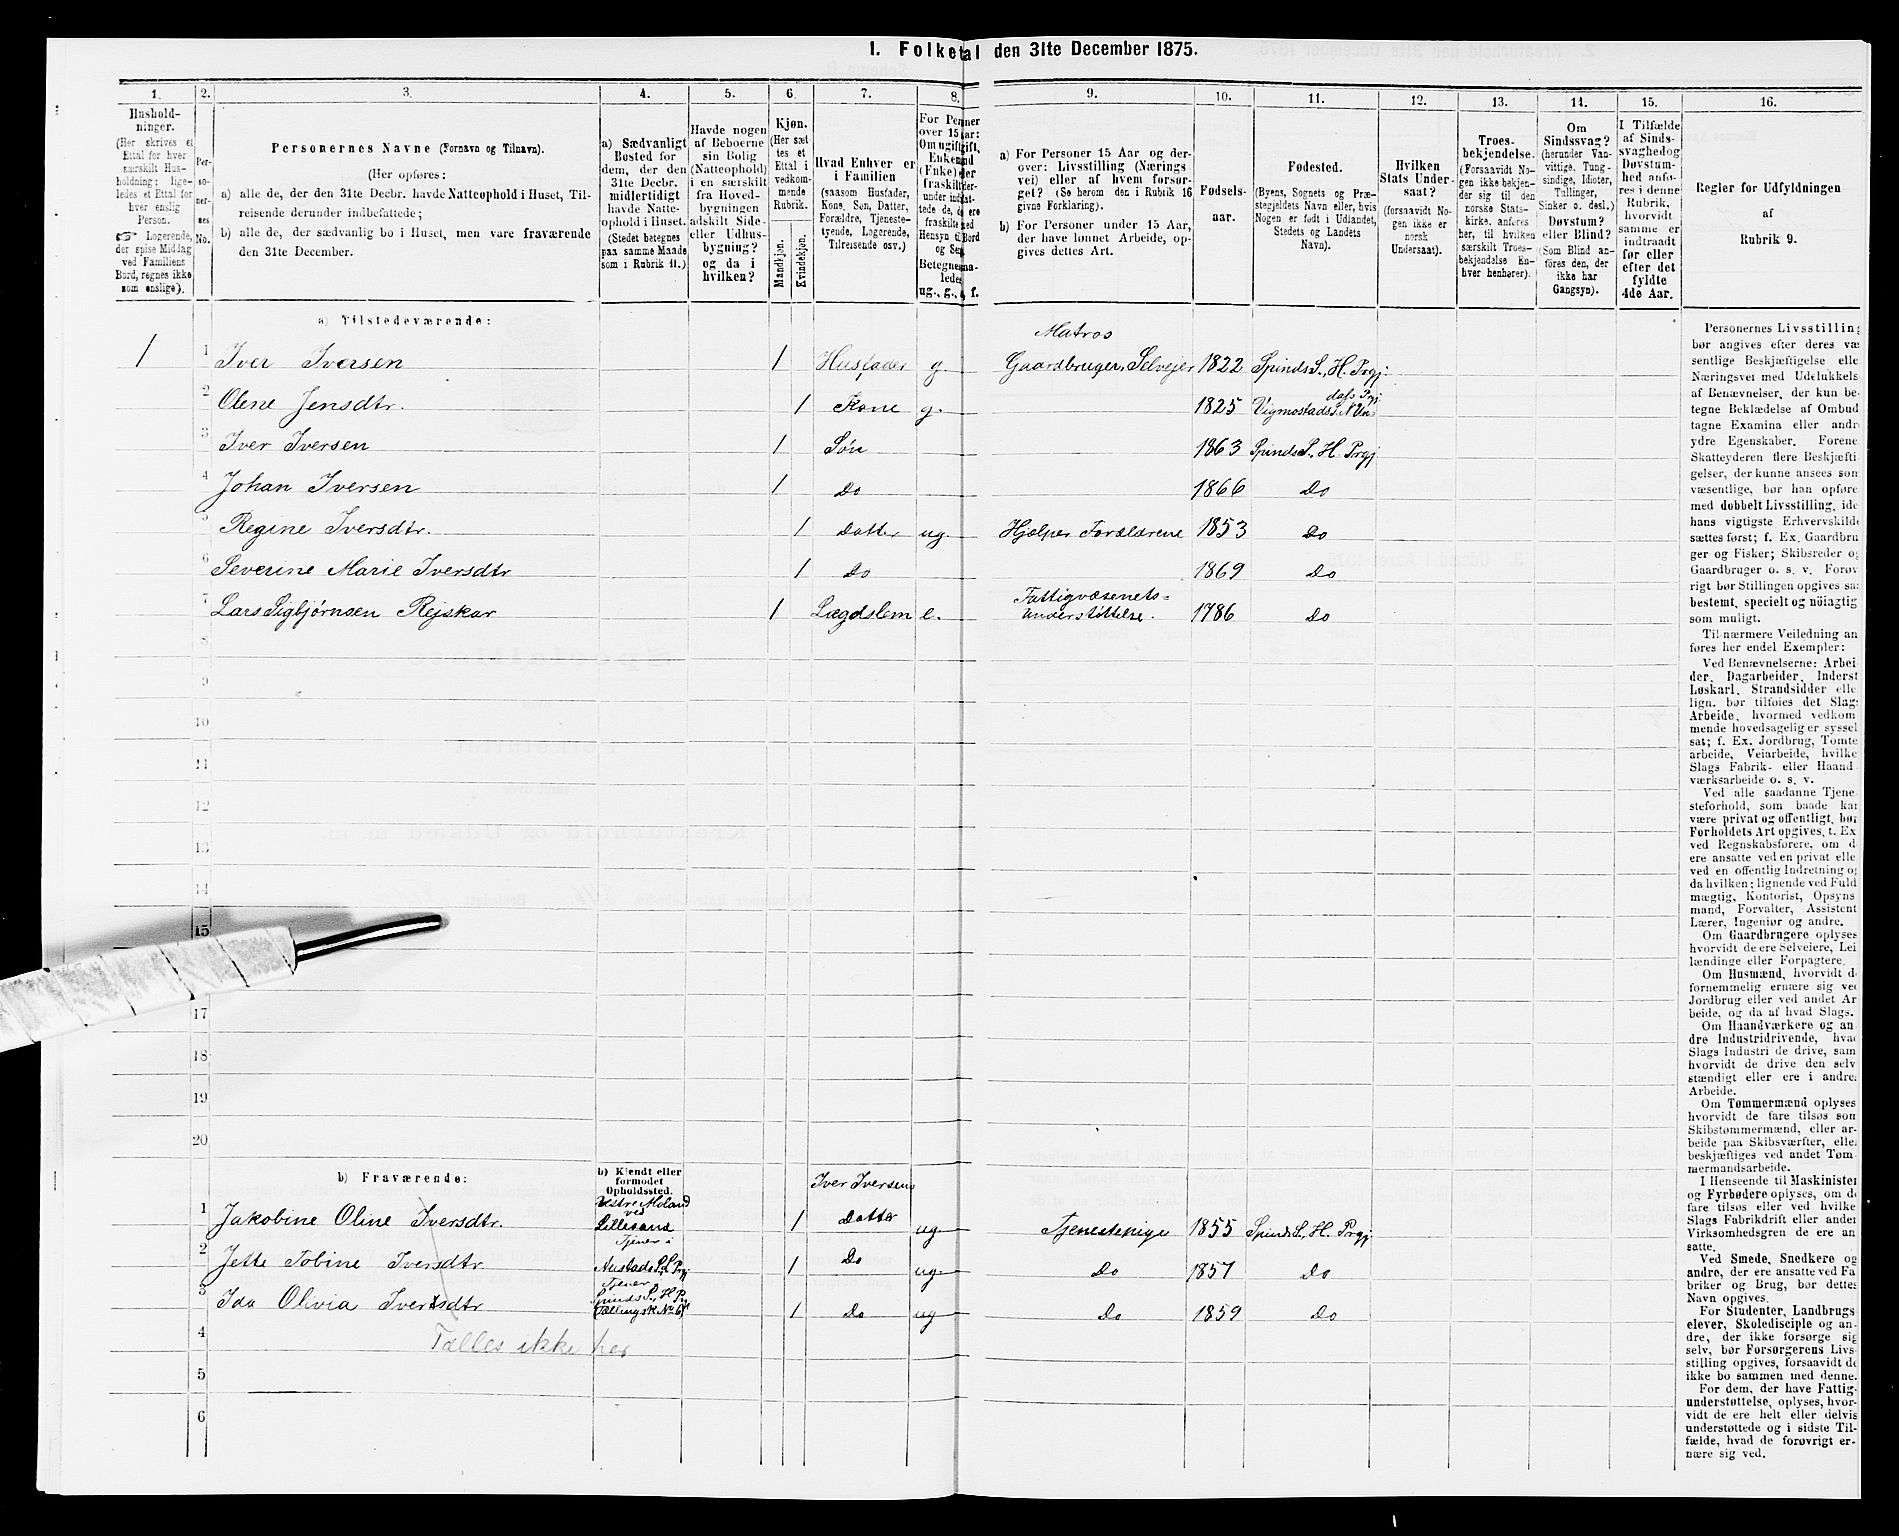 1. Folketal den 31te December 1875.
1. 2. 3. 4. 5. 6. 7. 8. 9. 10. 11. 12. 13. 14. 15. 16.
Hushold-
ninger.
(Her skrives et
Ettal for hver
særskilt Hus-
holdning; lige-
ledes et Ettal for
hver enslig
Person.
☞ Logerende,
der spise Middag
ved Familiens
Bord, regnes ikke
som enslige).
Per-
so-
ner-
nes
No.
Personernes Navne (Fornavn og Tilnavn).
(Her opføres:
a) alle de, der den 31te Decbr. havde Natteophold i Huset, Til-
reisende derunder indbefattede;
b) alle de, der sædvanlig bo i Huset, men vare fraværende
den 31te December.
a) Sædvanligt
Bosted for
dem, der den
31te Decbr.
midlertidigt
havde Natte-
ophold i Huset.
(Stedet betegnes
paa samme Maade
som i Rubrik 11.)
Havde nogen
af Beboerne
sin Bolig
(Natteophold)
i en særskilt
fra Hoved-
bygningen
adskilt Side-
eller Udhus-
bygning?
og da i
hvilken?
Kjøn.
(Her sæt-
tes et
Ettal i
vedkom-
mende
Rubrik.
Mandkjøn.
Kvindekjøn.
Hvad Enhver er
i Familien
(saasom Husfader,
Kone, Søn, Datter,
Forældre, Tjeneste-
tyende, Logerende,
Tilreisende osv.)
For Personer
over 15 Aar:
Om ugift, gift,
Enkemand
(Enke) eller
fraskilt
Betegnes
ug., g., e., f.
a) For Personer 15 Aar og der-
over: Livsstilling (Nærings-
vei) eller af hvem forsør-
get? (Se herom den i Rubrik 16
givne Forklaring).
b) For Personer under 15 Aar,
der have lønnet Arbeide, op-
gives dettes Art.
Fødsels-
aar.
Fødested.
(Byens, Sognets og Præ-
stegjeldets Navn eller, hvis
Nogen er født i Udlandet,
Stedets og Landets
Navn).
Hvilken
Stats Under-
saat?
(forsaavidt No-
gen ikke er
norsk
Undersaat).
Troes-
bekjendelse.
(Forsaavidt No-
gen ikke bekjen-
der sig til den
norske Stats-
kirke, anføres
her, til hvilken
særskilt Troes-
bekjendelse En-
hver henhører).
Om
Sindssvag?
(herunder Van-
vittige, Tung-
sindige, Idioter,
Tullinger,
Sinker o. desl.)
Døvstum?
eller Blind?
(Som Blind an-
føres den, der
ikke har
Gangsyn).
I Tilfælde
af Sinds-
svaghed og
Døvstum-
hed anfø-
res i denne
Rubrik,
hvorvidt
samme er
indtraadt
før eller
efter det
fyldte
4de Aar.
Regler for Udfyldningen
af
Rubrik 9.
a) Tilstedeværende:
Matros
1 1 Iver Iversen 1 Husfader g. Gaardbruger, Selvejer 1822 Spinds S., H. Prgj:
2 Olene Jensdtr. 1 Kone g. 1825 Vigmostads S. N Un= dals Prgj
3 Iver Iversen 1 Søn 1863 Spinds S., H. Prgj
4 Johan Iversen 1 Do 1866 Do
5 Regine Iversdtr. 1 Datter ug. Hjælper Forældrene 1853 Do
6 Severine Marie Iversdtr 1 Do 1869 Do
7 Lars Sigbjørnsen Rejskar 1 Lægdslem e. Fattigvæsenets= Understøttelse. 1786 Do
8
9
10
11
12
13
14
15
17
18
19
20
b) Fraværende:
b) Kjendt eller
formodet
Opholdssted.
Iver Iversens
1 Jakobine Oline Iversdtr. Vestre Moland ved Lillesand 1 Datter ug Tjenestepige 1855 Spinds S., H. Prgj
2 Jette Tobine Iversdtr Tjener i Austads S., L Prgj 1 Do ug. Do 1857 Do
3 Ida Olivia Iversdtr Tjener Spinds S., H Prj 1 Do ug Do 1859 Do
4 Tælles ikke her
5
6
Personernes Livsstilling
bør angives efter deres væ-
sentlige Beskjæftigelse eller
Næringsvei med Udelukkelse
af Benævnelser, der kun be-
tegne Beklædelse af Ombud
tagne Examina eller andre
ydre Egenskaber. Forene
Skatteyderen flere Beskjæfti-
gelser, der kunne ansees som
væsentlige, bør han opføres
med dobbelt Livsstilling, ide
hans vigtigste Erhvervskilde
sættes først; f. Ex. Gaardbru-
ger og Fisker; Skibsreder og
Gaardbruger o. s. v. Forøv-
rigt bør Stillingen opgives saa
bestemt, specielt og nøiagtig
som muligt.
Til nærmere Veiledning an-
føres her endel Exempler:
Ved Benævnelserne: Arbei-
der, Dagarbeider, Inderst
Løskarl, Strandsidder eller
lign. bør tilføies det Slags
Arbeide, hvormed vedkom-
mende hovedsagelig er syssel-
sat; f. Ex. Jordbrug, Tomte-
arbeide, Veiarbeide, hvilke
Slags Fabrik- eller Haand-
værksarbeide o. s. v.
Ved alle saadanne Tjene-
steforhold, som baade kan
være privat og offentligt, bør
Forholdets Art opgives, t. Ex
ved Regnskabsførere, om de
ere ansatte ved en privat eller
ved en offentlig Indretning og
da hvilken; lignende ved Fuld-
mægtig, Kontorist, Opsyns-
mand, Forvalter, Assistent
Lærer, Ingeniør og andre.
Om Gaardbrugere oplyses
hvorvidt de ere Selveiere, Lei-
lændinge eller Forpagtere.
Om Husmænd, hvorvidt de
fornemmelig ernære sig ved
Jordbrug eller ved andet Ar-
beide, og da af hvad Slags.
Om Haandværkere og an-
dre Industridrivende, hvad
Slags Industri de drive, samt
hvorvidt de drive den selv-
stændigt eller ere i andres
Arbeide.
Om Tømmermænd oplyses
hvorvidt de fare tilsøs som
Skibstømmermænd, eller ar-
beide paa Skibsværfter, eller
beskjæftiges ved andet Tøm-
mermandsarbeide.
I Henseende til Maskinister
og Fyrbødere oplyses, om de
fare tilsøs eller ved hvilke
Slags Fabrikdrift eller anden
Virksomhedsgren de ere an-
satte.
Ved Smede, Snedkere og
andre, der ere ansatte ved Fa-
briker og Brug, bør dettes
Navn opgives.
For Studenter, Landbrugs-
elever, Skoledisciple og an-
dre, der ikke forsørge sig
selv, bør Forsørgerens Livs-
stilling opgives, forsaavidt de
ikke bo sammen med denne.
For dem, der have Fattig-
understøttelse, oplyses, hvor-
vidt de ere helt eller delvis
understøttede og i sidste Til-
fælde, hvad de forøvrigt er-
nære sig ved.